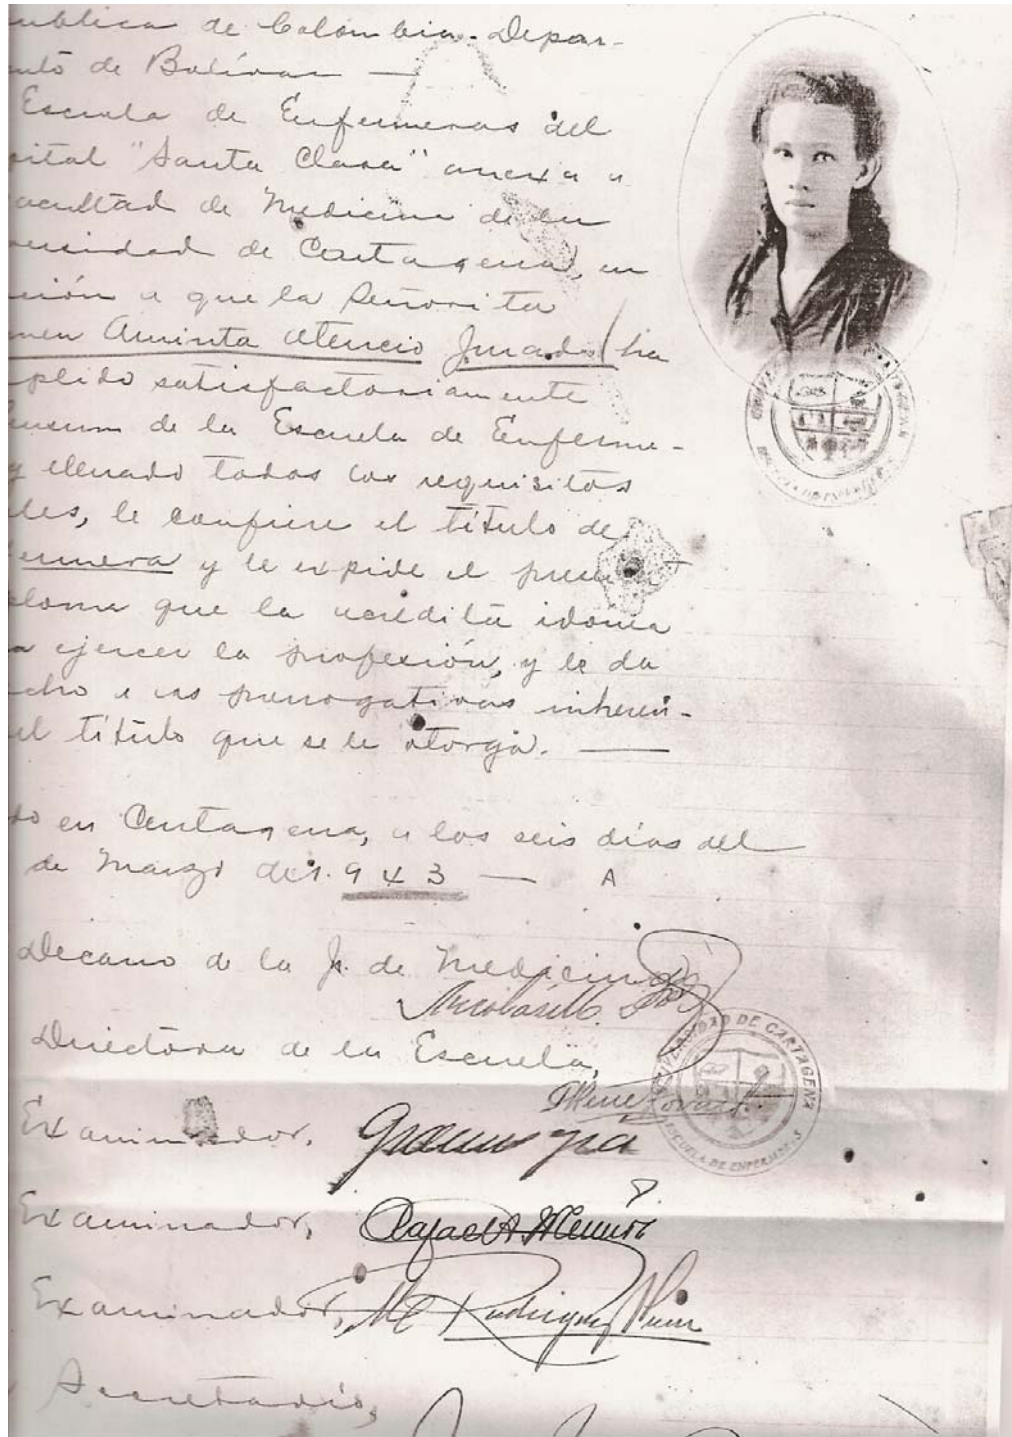 ublica de Colombia-Depar-
nto de Bolívar —
Escuela de Enfermeras del
pital "Santa Clara" anexa a
acultad de Medicina de la
versidad de Cartagena, en
ción a que la Señorita
men Aminta Atencio Jurado ha
plido satisfactoriamente
ensum de la Escuela de Enferme-
y llenado todos los requisitos
les, le confiere el título de
ermera y le expide el present
ploma que la acredita idonea
a ejercer la profesión, y le da
cho a las prerrogativas inheren-
al título que se le otorga. —
do en Cartagena, a los seis días del
de Marzo de 1.943 — A
Decano de la F. de Medicina
Directora de la Escuela,
UNIVERSIDAD DE CARTAGENA
ESCUELA DE ENFERMERAS
Examinador,
Examinador, Rafael A. Muñoz
Examinador, M C Rodríguez
Secretario,